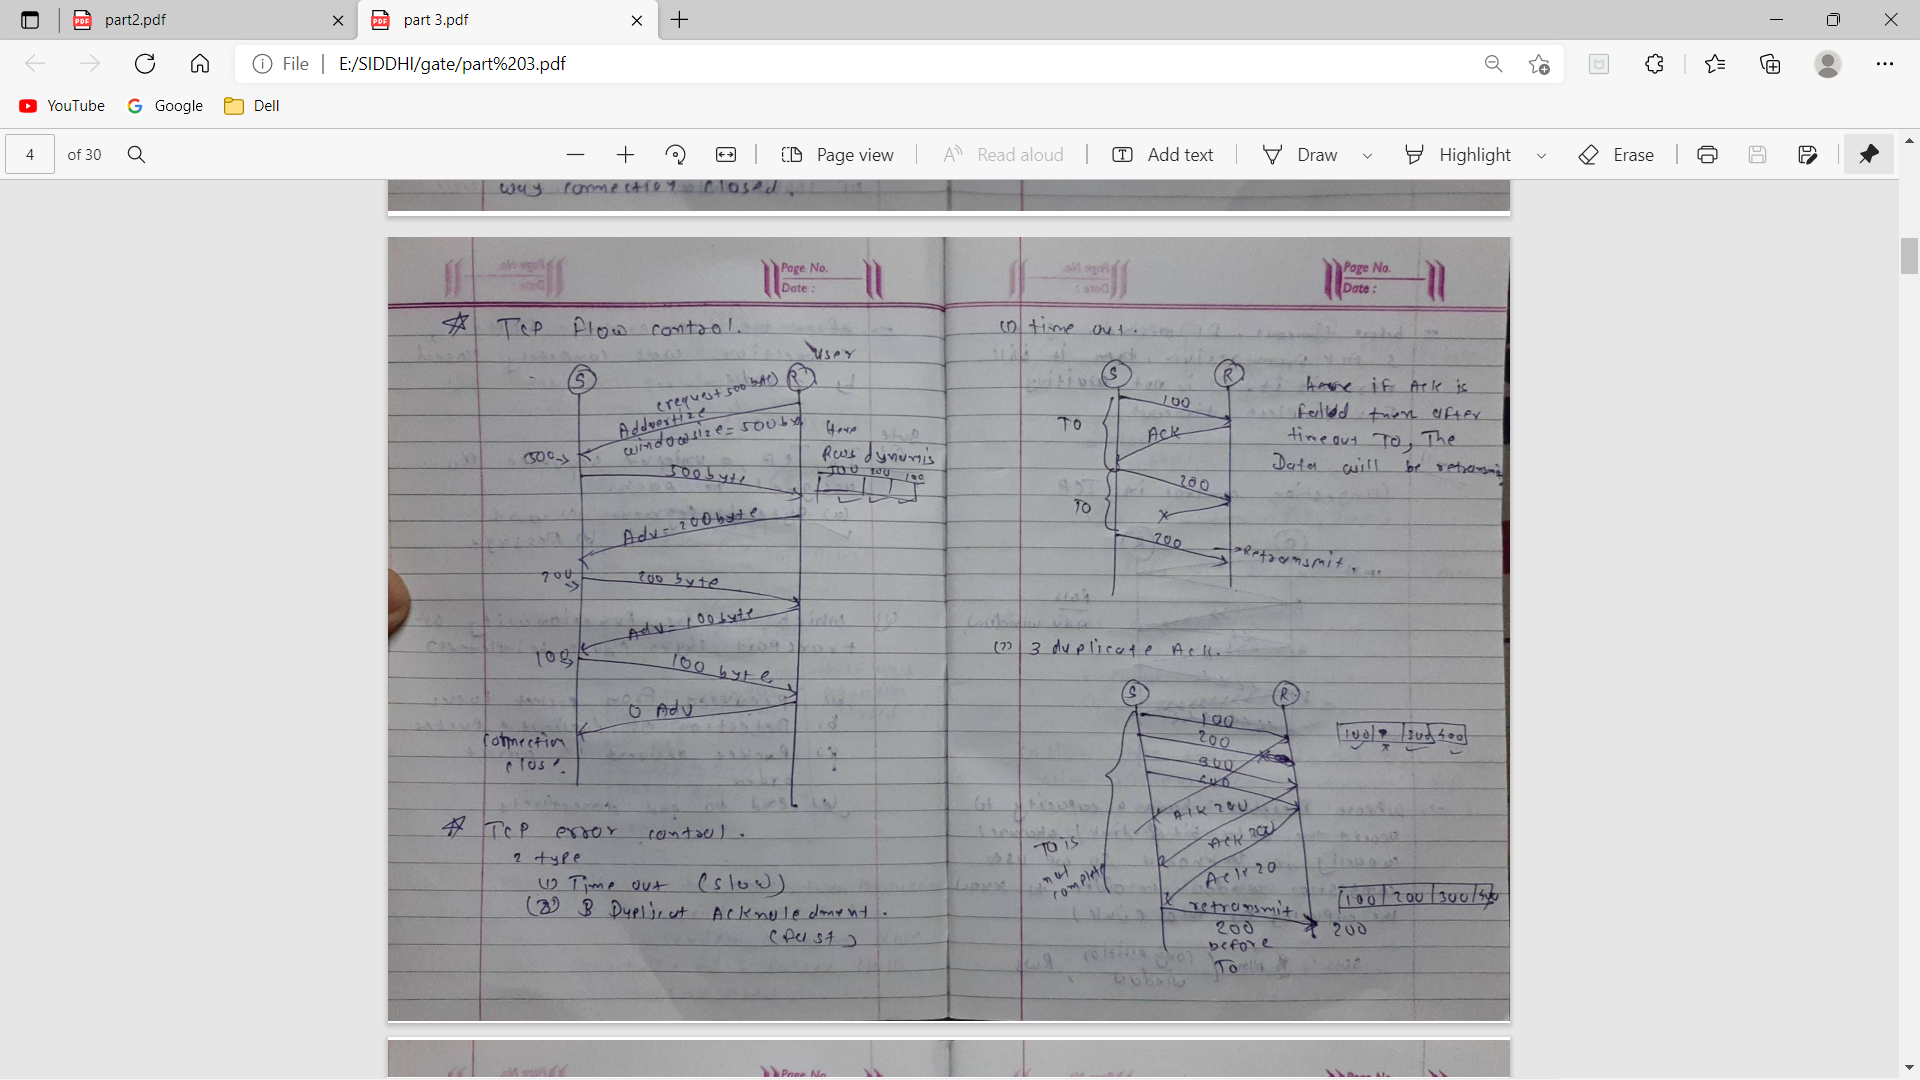 part2.pdf
part 3.pdf
File
E:/SIDDHI/gate/part%203.pdf
YouTube
Google
Dell
4
of 30
Page view
Read aloud
Add text
Draw
Highlight
Erase
way connection closed.
Page No.
Date :
TCP flow control.
user
S
R
(request 500 byte)
Addvertize
windowsize = 500 by
Here
RWS dynamis
500
200
100
500
500 byte
Adv = 200 byte
200
200 byte
Adv = 100 byte
100
100 byte
0 Adv
connection
close.
TCP error control.
2 type
(1) Time out (slow)
(2) 3 Duplicat Acknoledment.
(fast)
Page No.
Date :
(1) time out.
S
R
TO
100
Ack
TO
200
x
200
Retransmit.
Here if Ack is
failed then after
timeout TO, The
Data will be retransmi
(2) 3 duplicate Ack.
S
R
100
200
300
400
Ack 200
Ack 200
Ack 20
TO is
not
complete
retransmit
200
before
TO
200
100
300
400
100
200
300
Page No.